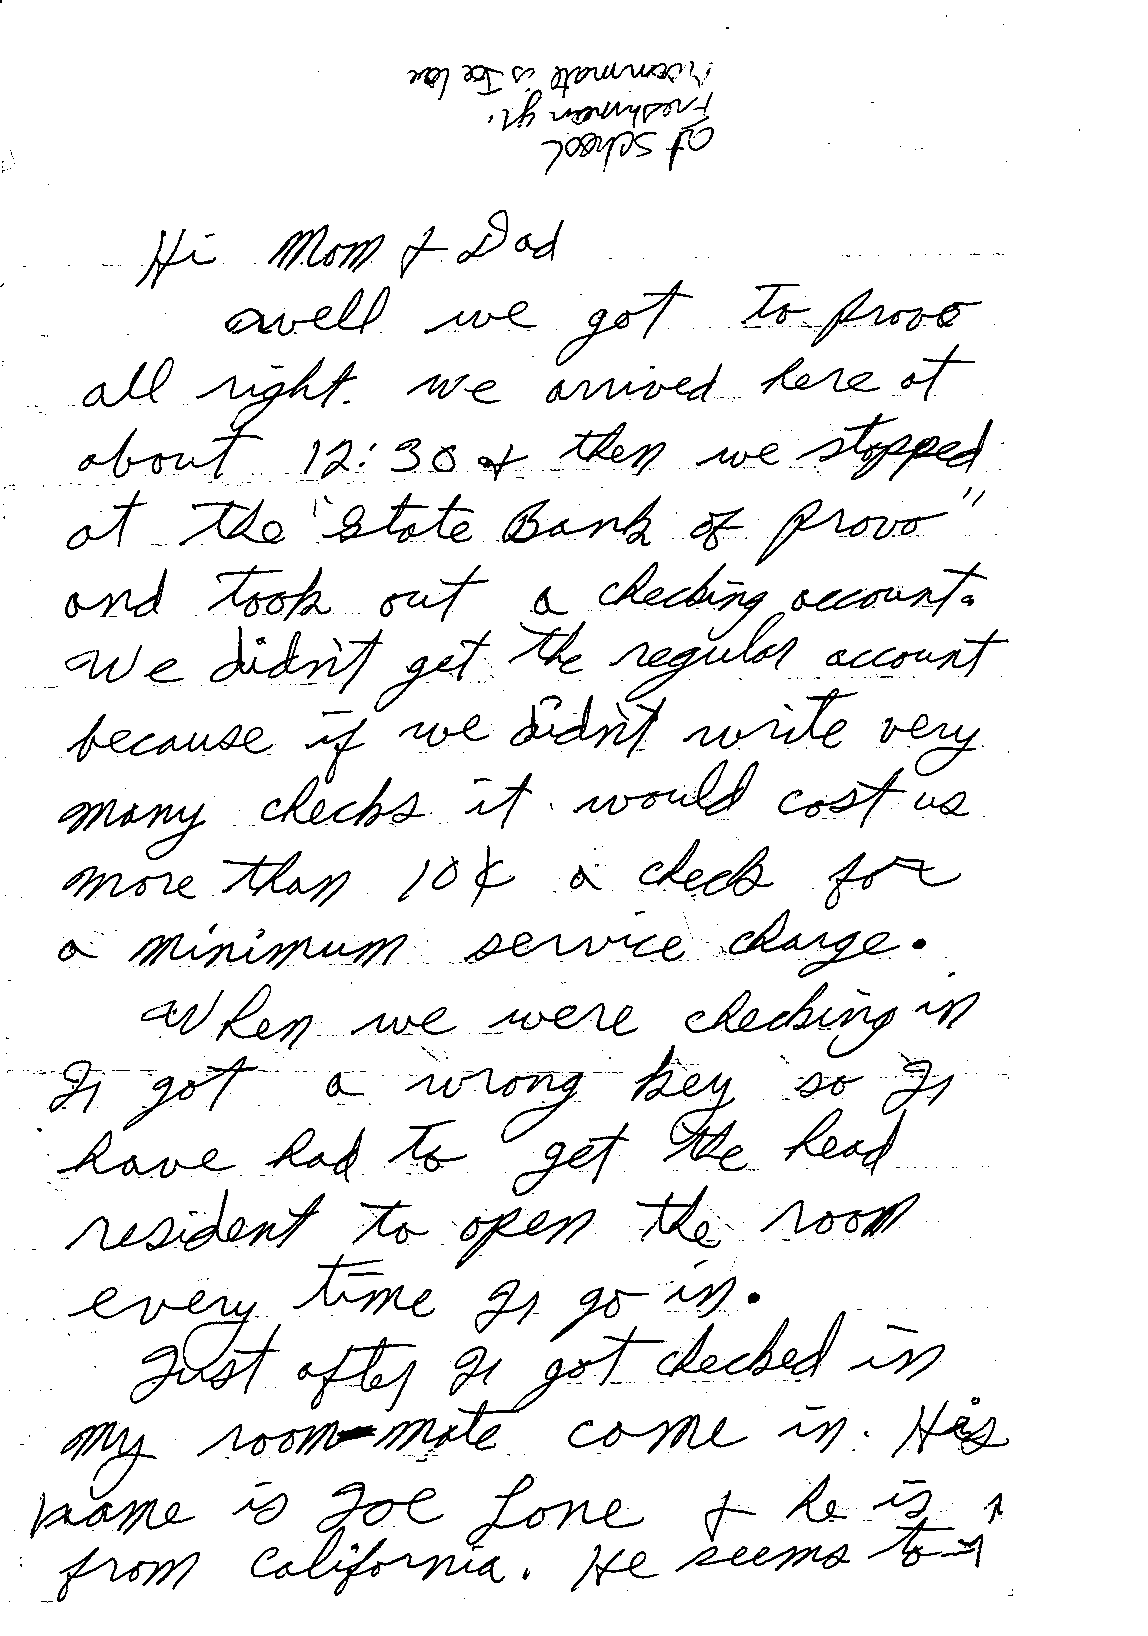 at school
Freshman yr.
Roommate is Joe Lane
Hi Mom & Dad
well we got to provo
all right. we arrived here at
about 12:30 & then we stopped
at the "State Bank of provo"
and took out a checking account.
We didn't get the regular account
because if we didn't write very
many checks it would cost us
more than 10¢ a check for
a minimum service charge.
When we were checking in
I got a wrong key so I
have had to get the head
resident to open the room
every time I go in.
Just after I got checked in
my room-mate come in. His
name is Joe Lane & he is
from California. He seems to